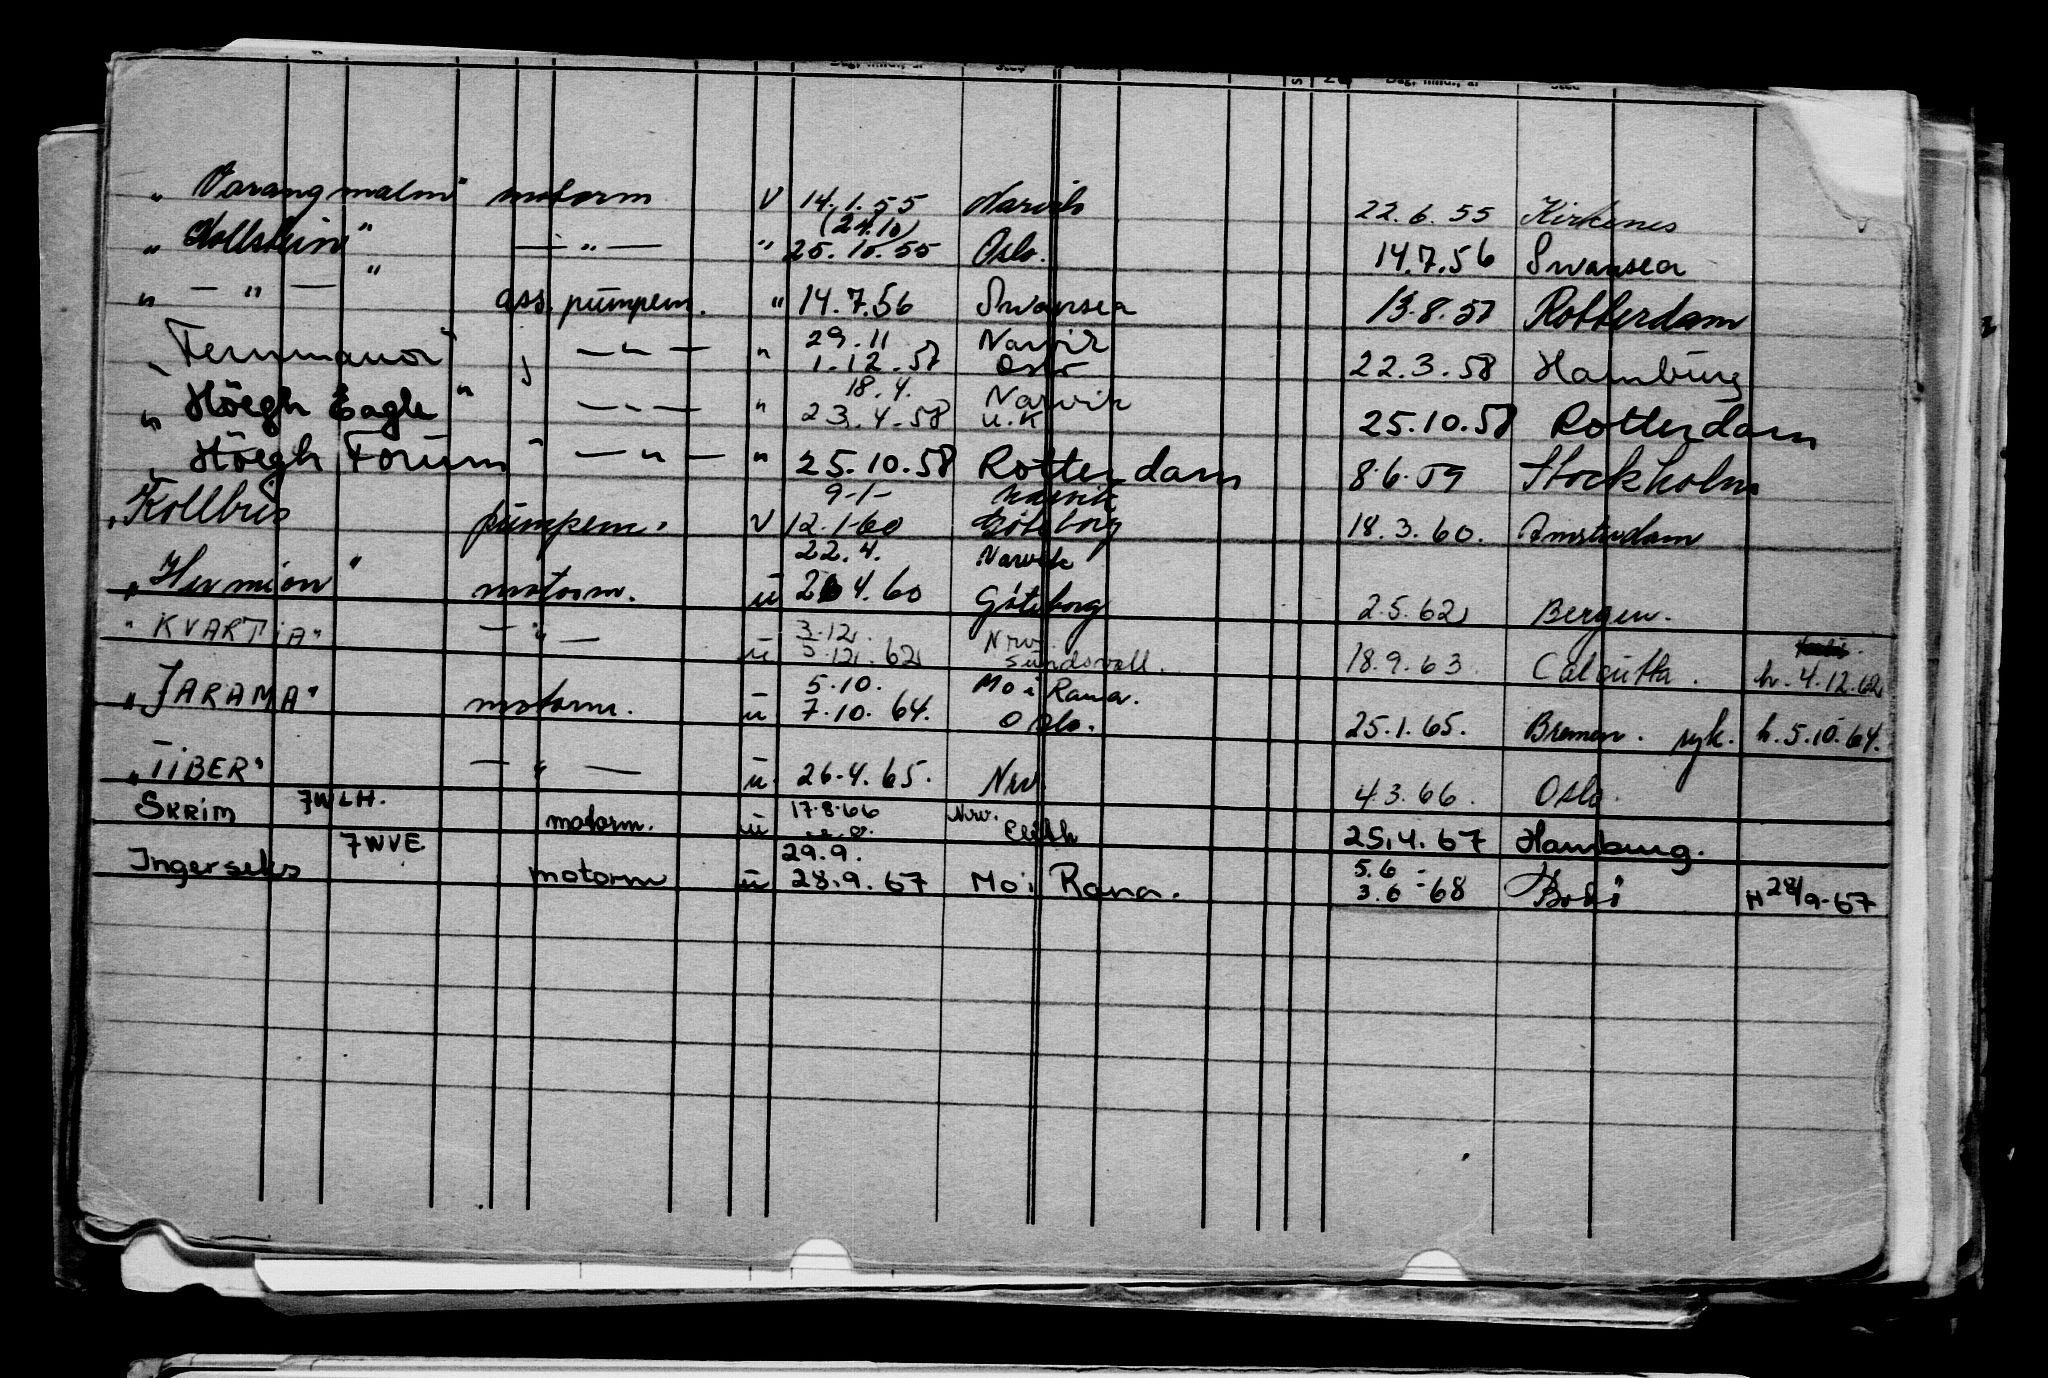 „ Varangmalm" motorm V 14.1.55 Narvik 22.6.55 Kirkenes
(24.10)
„ Kollstein" — „ — " 25.10.55 Oslo. 14.7.56 Swansea
„ — „ — " ass. pumpem. " 14.7.56 Swansea 13.8.57 Rotterdam
29.11 Narvik
„ Fernmanor" — „ — " 1.12.57 Oslo 22.3.58 Hamburg
18.4. Narvik
„ Höegh Eagle" — „ — " 23.4.58 U.K 25.10.58 Rotterdam
„ Höegh Forum" — „ — " 25.10.58 Rotterdam 8.6.59 Stockholm
9-1- Narvik
„ Kollbris pumpem. V 12.1-60 Göteborg 18.3.60. Amsterdam
22.4. Narvik
„ Hermion" motorm. u 26 4.60 Göteborg 2.5.62 Bergen.
3.12. Nrv.
" KVARTIA" — „ — u 5.12.62 Sundsvall. 18.9.63 Calcutta. h. 4.12.62
5.10. Mo i Rana.
„ JARAMA" motorm. u 7.10.64. Oslo. 25.1.65. Bremen. syk. h. 5.10.64.
„ TIBER" — „ — u 26.4.65. Nrv. 4.3.66. Oslo.
SKRIM 7WLH. motorm. u 17.8.66 Nrv. 25.4.67 Hamburg.
7WVE 29.9. 5.6
Ingerseks motorm u 28.9.67 Mo i Rana. 3.6-68 H 28/9-67